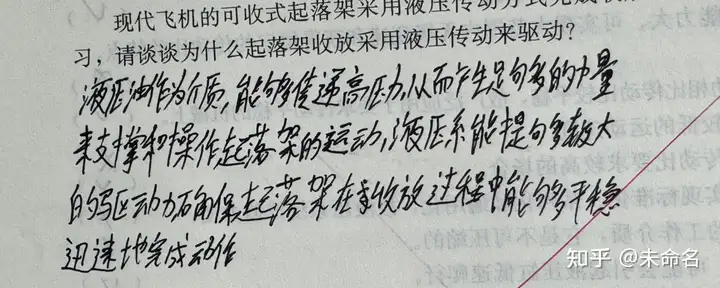 现代飞机的可收式起落架采用液压传动方式完成收
习，请谈谈为什么起落架收放采用液压传动来驱动？
液压油作为介质,能够传递高压力,从而产生足够多的力量
来支撑和操作起落架的运动,液压系能提够多较大
的驱动力确保起落架在收放过程中能够平稳
迅速地完成动作
知乎 @未命名